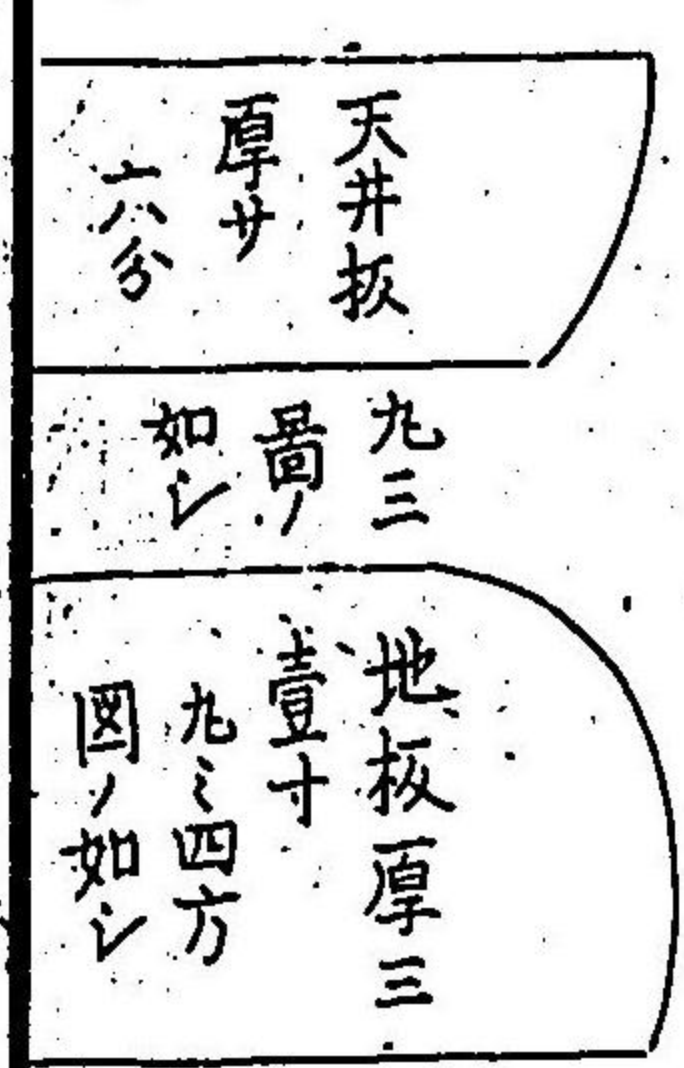 天井板
厚サ
六分
丸ミ
啚ノ
如シ
地板厚ミ
壹寸
丸ミ四方
図ノ如シ